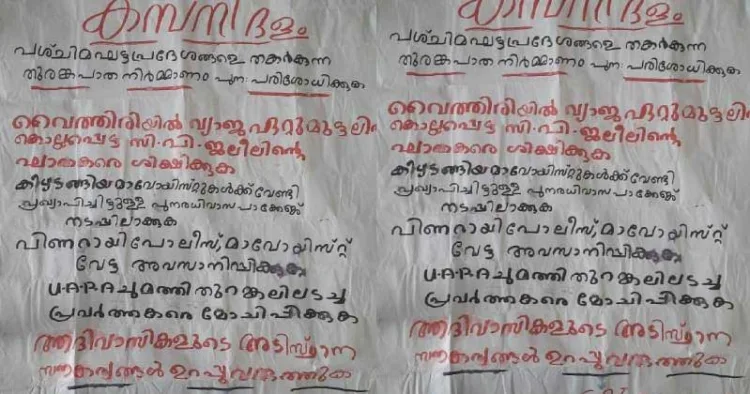 ദളം
പശ്ചിമഘട്ടപ്രദേശങ്ങളെ തകർക്കുന്ന
തുരങ്കപാത നിർമ്മാണം പുനഃ പരിശോധിക്കുക
വൈത്തിരിയിൽ വ്യാജഏറ്റുമുട്ടലിൽ
കൊല്ലപ്പെട്ട സി.പി.ജലീലിന്റെ
ശിക്ഷിക്കുക
കീഴടങ്ങിയ മാവോയിസ്റ്റുകൾക്ക് വേണ്ടി
പ്രഖ്യാപിച്ചിട്ടുള്ള പുനരധിവാസ പാക്കേജ്
നടപ്പിലാക്കുക
പിണറായി പോലീസ്, മാവോയിസ്റ്റ്
വേട്ട അവസാനിപ്പിക്കുക
U.A.P.A ചുമത്തി തുറങ്കലിലടച്ച
പ്രവർത്തകരെ മോചിപ്പിക്കുക
ആദിവാസികളുടെ അടിസ്ഥാന
സൗകര്യങ്ങൾ ഉറപ്പുവരുത്തുക
ദളം
പശ്ചിമഘട്ടപ്രദേശങ്ങളെ തകർക്കുന്ന
തുരങ്കപാത നിർമ്മാണം പുനഃ പരിശോധിക്കുക
വൈത്തിരിയിൽ വ്യാജഏറ്റുമുട്ടലിൽ
കൊല്ലപ്പെട്ട സി.പി.ജലീലിന്റെ
ശിക്ഷിക്കുക
കീഴടങ്ങിയ മാവോയിസ്റ്റുകൾക്ക് വേണ്ടി
പ്രഖ്യാപിച്ചിട്ടുള്ള പുനരധിവാസ പാക്കേജ്
നടപ്പിലാക്കുക
പിണറായി പോലീസ്, മാവോയിസ്റ്റ്
വേട്ട അവസാനിപ്പിക്കുക
U.A.P.A ചുമത്തി തുറങ്കലിലടച്ച
പ്രവർത്തകരെ മോചിപ്പിക്കുക
ആദിവാസികളുടെ അടിസ്ഥാന
സൗകര്യങ്ങൾ ഉറപ്പുവരുത്തുക